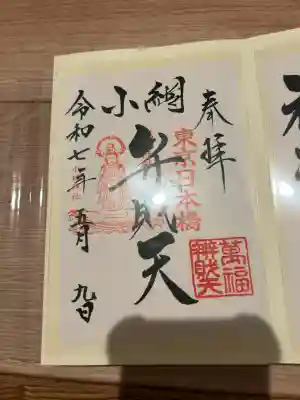 奉拝
東京日本橋
小網
弁財天
萬福
辨財天
令和七年五月九日